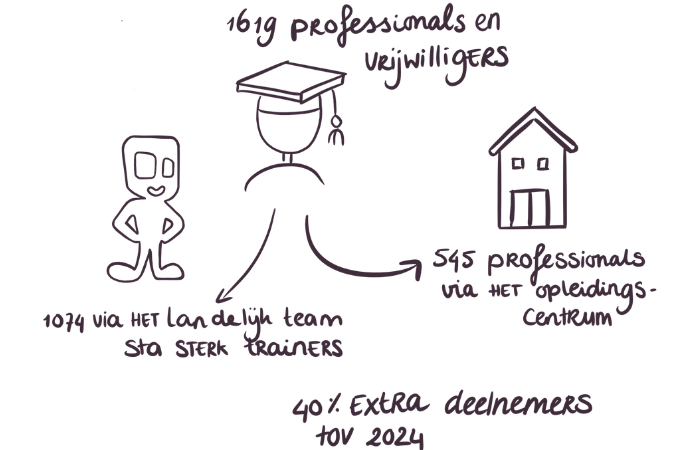 1619 professionals en
vrijwilligers
545 professionals
via het opleidings-
centrum
1074 via het landelijk team
Sta Sterk trainers
40% extra deelnemers
tov 2024